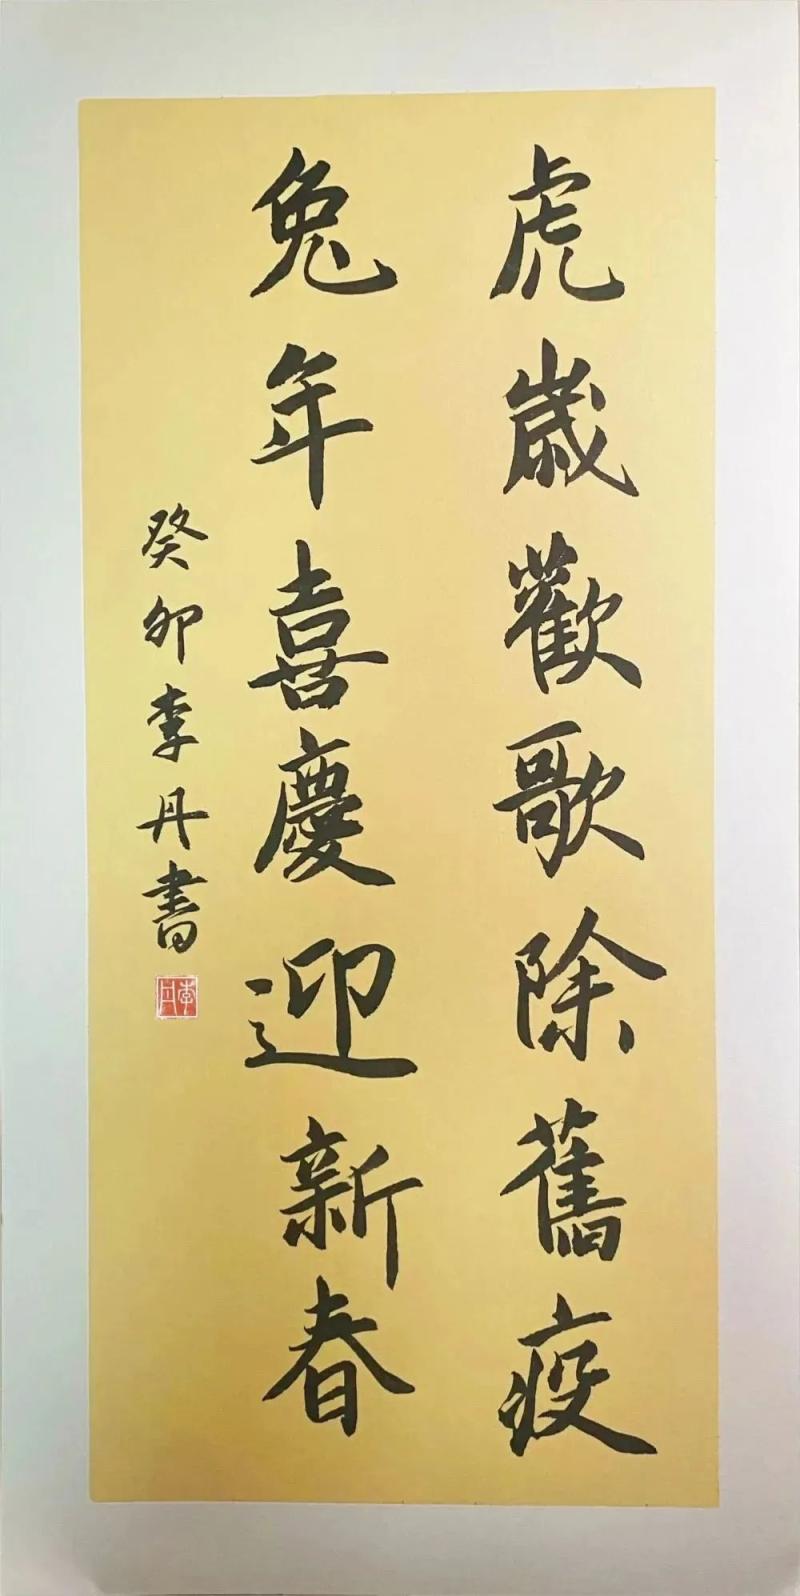 虎歲歡歌除舊疫
兔年喜慶迎新春
癸卯李丹書
李丹